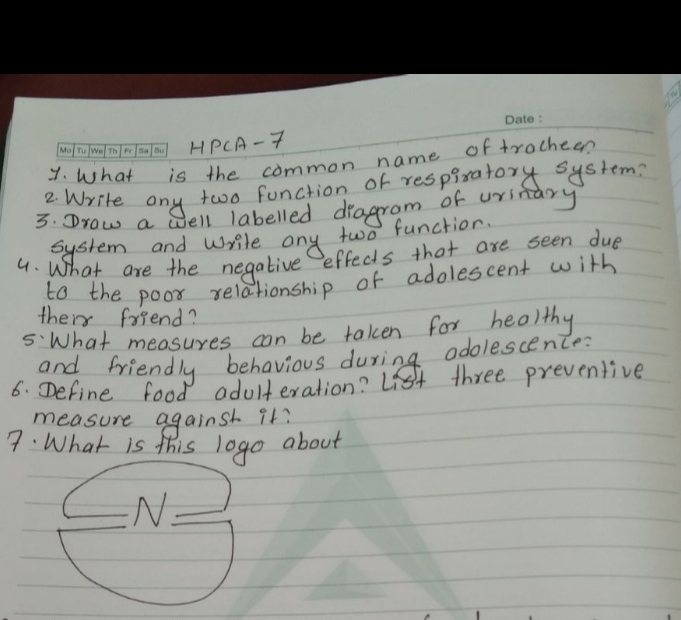 Date :
Mo Tu We Th Fr Sa Su HPCA-7
1. What is the common name of trachea?
2. Write any two function of respiratory system?
3. Draw a well labelled diagram of urinary
system and write any two function.
4. What are the negative effects that are seen due
to the poor relationship of adolescent with
their friend?
5. What measures can be taken for healthy
and friendly behavious during adolescente?
6. Define food adulteration? List three preventive
measure against it?
7. What is this logo about
N